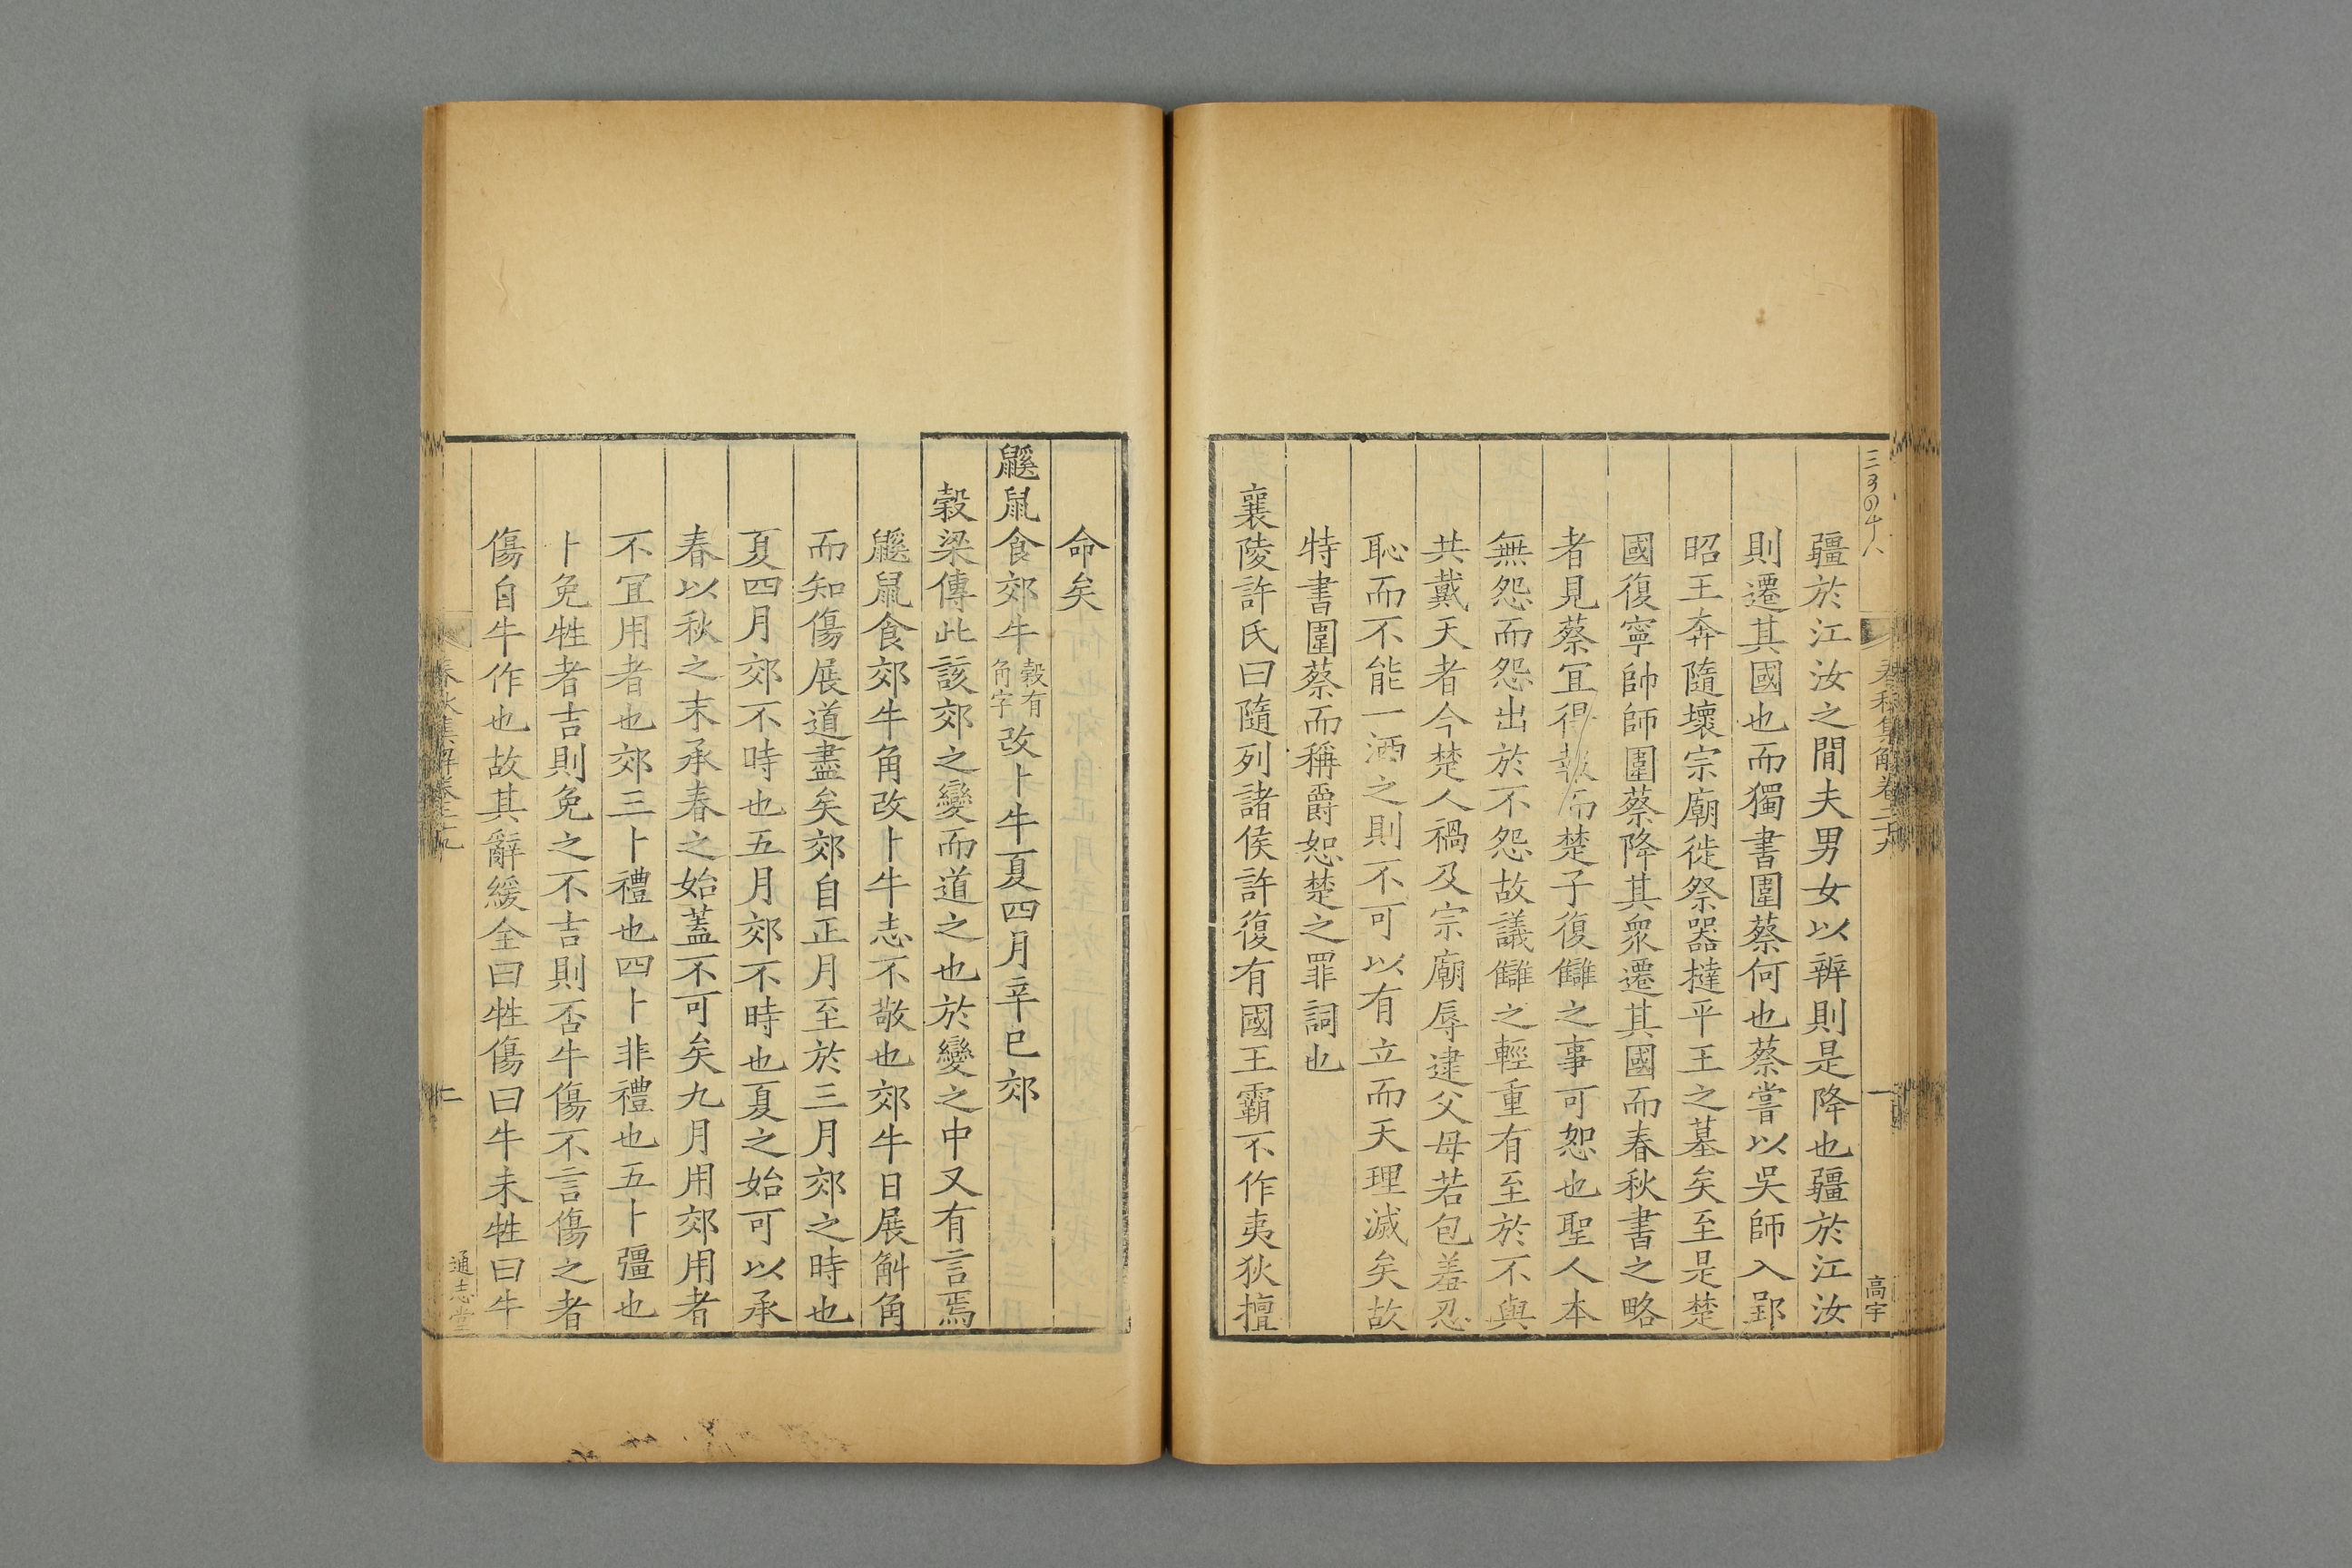 春秋集解卷二十九
一
高宇
疆於江汝之間夫男女以辨則是降也疆於江汝
則遷其國也而獨書圍蔡何也蔡嘗以吳師入郢
昭王奔隨壞宗廟徙祭器撻平王之墓矣至是楚
國復寧帥師圍蔡降其衆遷其國而春秋書之略
者見蔡宜得報而楚子復讎之事可恕也聖人本
無怨而怨出於不怨故議讎之輕重有至於不與
共戴天者今楚人禍及宗廟辱逮父母若包羞忍
恥而不能一洒之則不可以有立而天理滅矣故
特書圍蔡而稱爵恕楚之罪詞也
襄陵許氏曰隨列諸侯許復有國王霸不作夷狄擅
命矣
鼷鼠食郊牛穀有角字改卜牛夏四月辛巳郊
穀梁傳此該郊之變而道之也於變之中又有言焉
鼷鼠食郊牛角改卜牛志不敬也郊牛日展斛角
而知傷展道盡矣郊自正月至於三月郊之時也
夏四月郊不時也五月郊不時也夏之始可以承
春以秋之末承春之始蓋不可矣九月用郊用者
不宜用者也郊三卜禮也四卜非禮也五卜彊也
卜免牲者吉則免之不吉則否牛傷不言傷之者
傷自牛作也故其辭緩全曰牲傷曰牛未牲曰牛
春秋集解卷二十九
二
通志堂